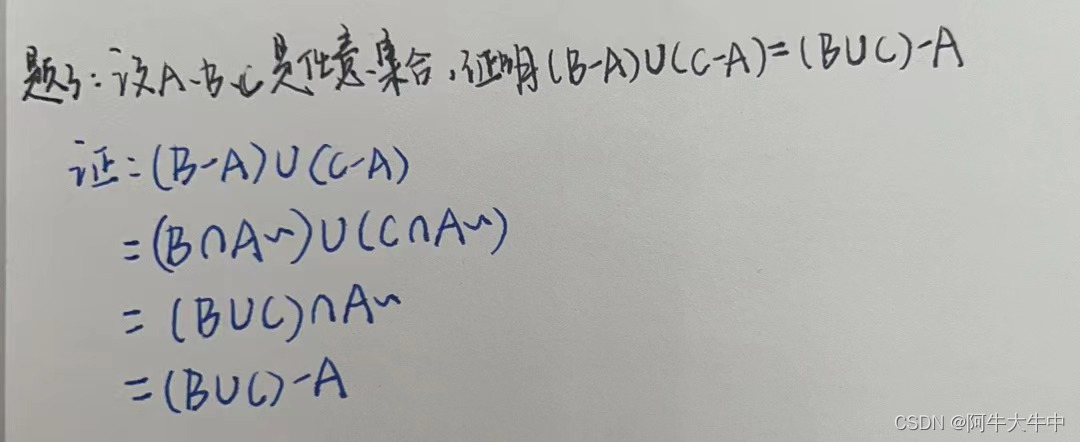 题3:设A、B、C是任意集合,证明(B-A)∪(C-A)=(B∪C)-A
证:(B-A)∪(C-A)
=(B∩A~)∪(C∩A~)
=(B∪C)∩A~
=(B∪C)-A
CSDN @阿牛大牛中